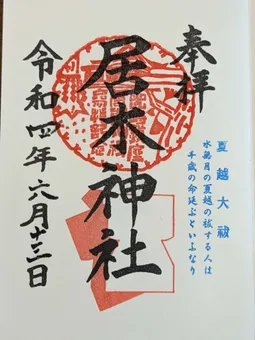 奉拝
夏越大祓
水無月の夏越の祓する人は
千歳の命延ぶといふなり
居木神社
令和四年六月十三日